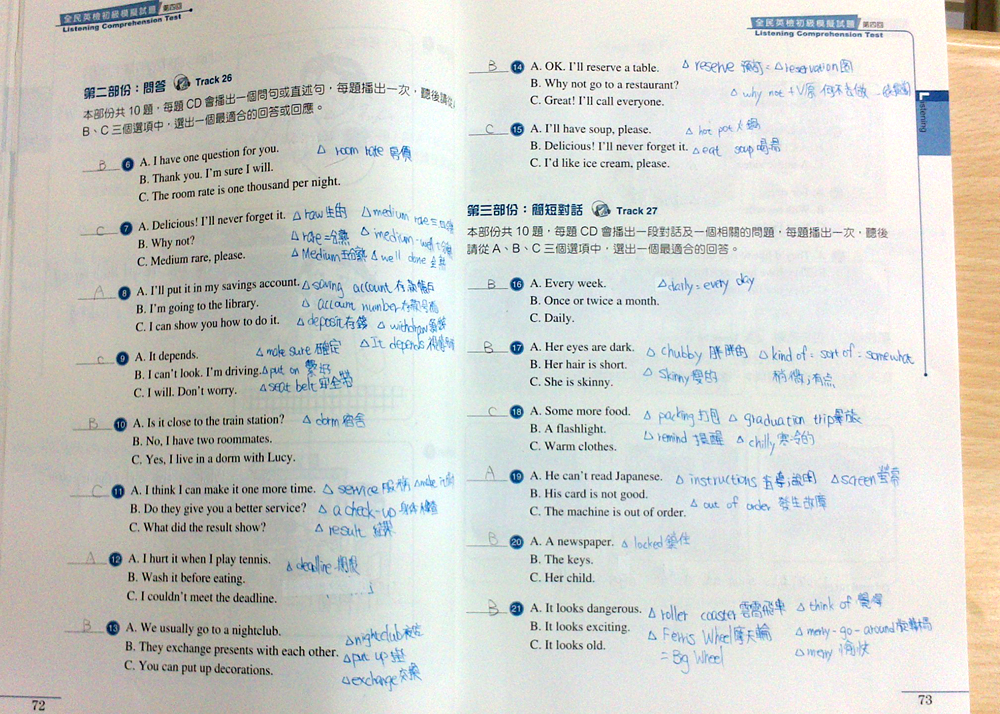 全民英檢初級模擬試題 第四回
Listening Comprehension Test
第二部份：問答 Track 26
本部份共 10 題，每題 CD 會播出一個問句或直述句，每題播出一次，聽後請從
B、C 三個選項中，選出一個最適合的回答或回應。
B 6 A. I have one question for you. △ room rate 房價
B. Thank you. I'm sure I will.
C. The room rate is one thousand per night.
C 7 A. Delicious! I'll never forget it. △ raw 生的 △ medium rare 三
B. Why not? △ rare 一分熟 △ medium-well
C. Medium rare, please. △ Medium 五分熟 △ well done 全熟
A 8 A. I'll put it in my savings account. △ saving account 存款帳戶
B. I'm going to the library. △ account number
C. I can show you how to do it. △ deposit 存錢 △ withdraw
C 9 A. It depends. △ make sure 確定 △ It depends
B. I can't look. I'm driving. △ put on 繫好
C. I will. Don't worry. △ seat belt 安全帶
B 10 A. Is it close to the train station? △ dorm 宿舍
B. No, I have two roommates.
C. Yes, I live in a dorm with Lucy.
C 11 A. I think I can make it one more time. △ service 服務 △ make it
B. Do they give you a better service? △ a check-up 身體檢查
C. What did the result show? △ result 結果
A 12 A. I hurt it when I play tennis. △ deadline 期限
B. Wash it before eating.
C. I couldn't meet the deadline.
B 13 A. We usually go to a nightclub. △ nightclub 夜店
B. They exchange presents with each other. △ put up
C. You can put up decorations. △ exchange 交換
72
全民英檢初級模擬試題 第四回
Listening Comprehension Test
Listening
B 14 A. OK. I'll reserve a table. △ reserve 預訂 △ reservation
B. Why not go to a restaurant? △ why not + V原 何不去做
C. Great! I'll call everyone.
C 15 A. I'll have soup, please. △ hot pot 火鍋
B. Delicious! I'll never forget it. △ eat soup 喝湯
C. I'd like ice cream, please.
第三部份：簡短對話 Track 27
本部份共 10 題，每題 CD 會播出一段對話及一個相關的問題，每題播出一次，聽後
請從 A、B、C 三個選項中，選出一個最適合的回答。
B 16 A. Every week. △ daily = every day
B. Once or twice a month.
C. Daily.
B 17 A. Her eyes are dark. △ chubby 胖胖的 △ kind of = sort of = somewhat
B. Her hair is short. △ skinny 瘦的 稍微；有点
C. She is skinny.
C 18 A. Some more food. △ packing 打包 △ graduation trip 畢旅
B. A flashlight. △ remind 提醒 △ chilly 寒冷的
C. Warm clothes.
A 19 A. He can't read Japanese. △ instructions 指導；說明 △ screen 螢幕
B. His card is not good. △ out of order 發生故障
C. The machine is out of order.
B 20 A. A newspaper. △ locked 鎖住
B. The keys.
C. Her child.
B 21 A. It looks dangerous. △ roller coaster 雲霄飛車 △ think of 覺得
B. It looks exciting. △ Ferris Wheel 摩天輪 △ merry-go-around 旋轉木馬
C. It looks old. = Big Wheel △ merry 愉快
73